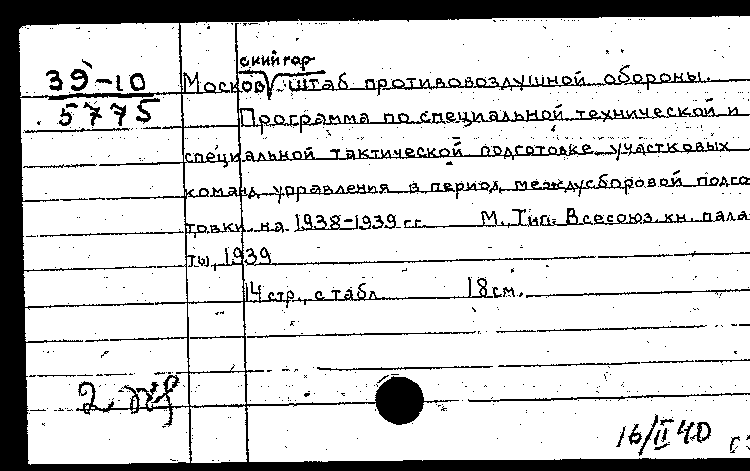 ский гор
39-10 Москов штаб противовоздушной обороны.
5775 Программа по специальной технической и
специальной тактической подготовке участковых
команд управления в период междусборовой подго-
товки на 1938-1939 гг. М. Тип. Всесоюз. кн. пала-
ты, 1939
14 стр., с табл. 18 см.
16/II 40